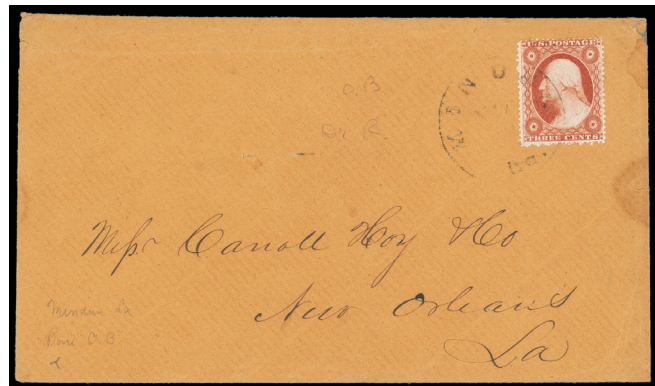 U.S. POSTAGE
THREE CENTS
MIND
La
O.B
Messrs Carroll Hoy & Co
New Orleans
La
Minden La
O.B